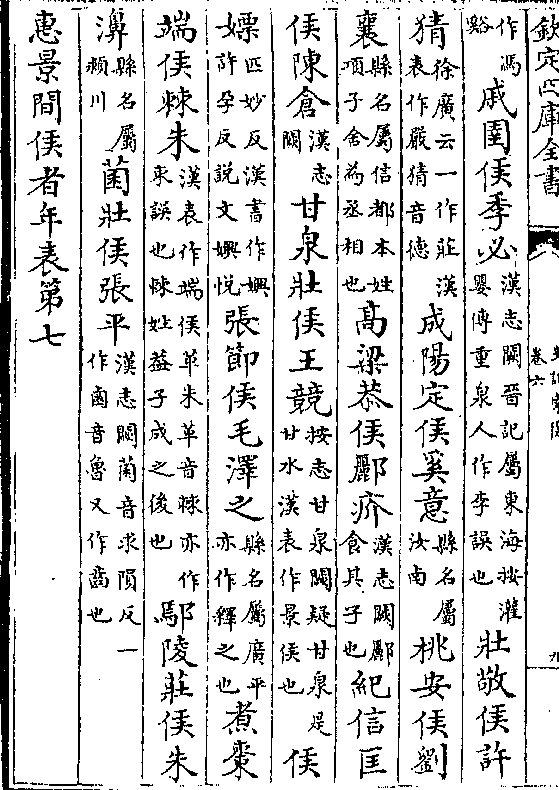 欽定四庫全書
史記索隱
卷六
九
作馮谿戚圉侯季必漢志闕晉記屬東海按灌嬰傳重泉人作李誤也壯敬侯許
猜徐廣云一作莊漢表作嚴猜音德成陽定侯奚意縣名屬汝南桃安侯劉
襄縣名屬信都本姓項子舍為丞相也髙梁恭侯酈疥漢志闕酈食其子也紀信匡
侯陳倉漢志闕甘泉壯侯王競按志甘泉闕疑甘泉是甘水漢表作景侯也侯
嫖匹妙反漢書作嬹許孕反説文嬹悅張節侯毛澤之縣名屬廣平亦作釋之也煮棗
端侯棘朱漢表作端侯革朱革音棘亦作朿誤也棘姓葢子成之後也鄢陵莊侯朱
濞縣名屬潁川菌壯侯張平漢志闕菌音求隕反一作鹵音魯又作齒也
惠景間侯者年表第七